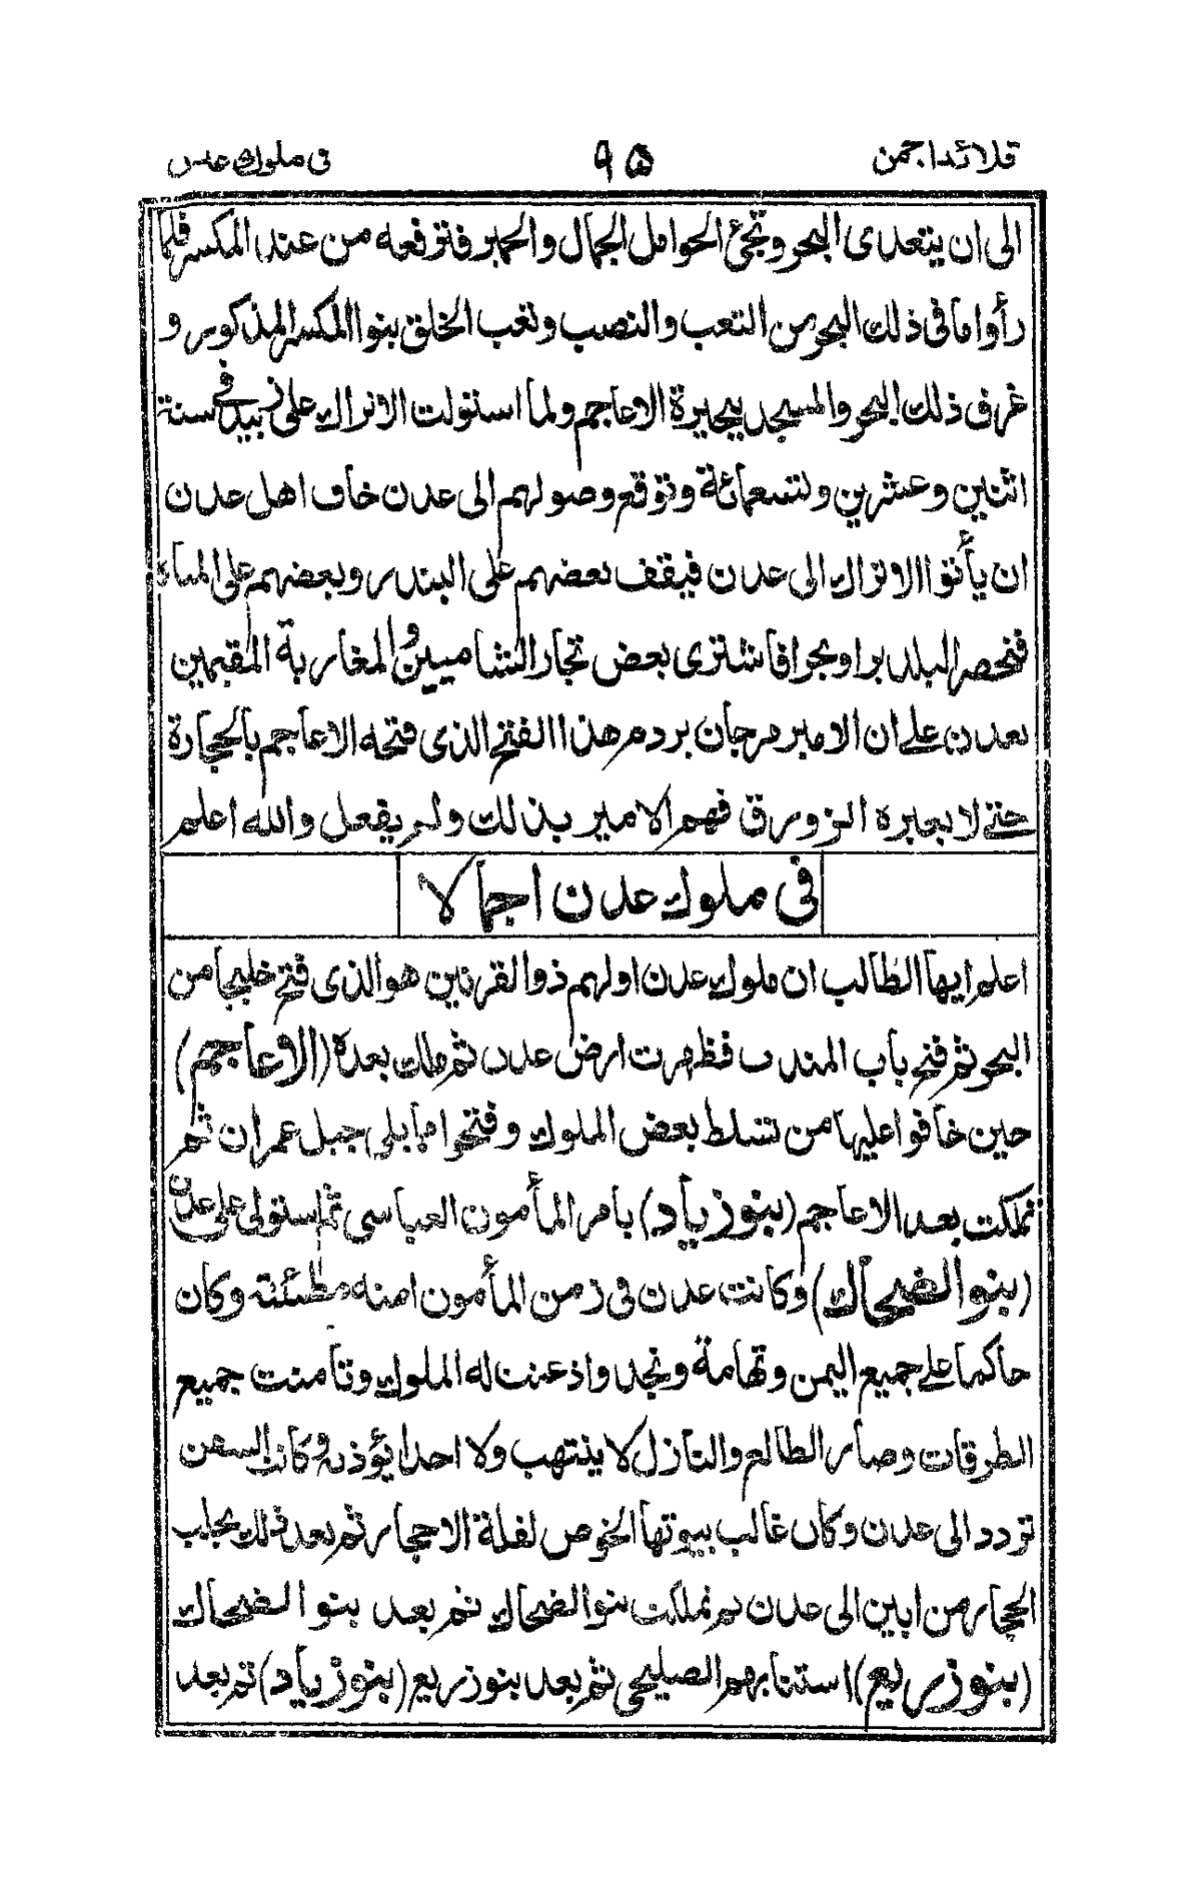 قلائد اجمن ٩٥ فى ملوك عدن
الى ان يتعدى البحر وتجئ الحوامل الجمال والحمير فترفعه من عند المكسر فلما
رأوا ما فى ذلك البحر من التعب والنصب وتغب الخلق بنوا المكسر المذكور و
غرف ذلك البحر والمسجد ببحيرة الاعاجم ولما استولت الاتراك على زبيد فى سنة
اثنين وعشرين وتسعمائة وتوقع وصولهم الى عدن خاف اهل عدن
ان يأتوا الاتراك الى عدن فيقف بعضهم على البندر وبعضهم على المباه
فنحصر البلد برا وبحرا فاشترى بعض تجار الشاميين والمغاربة المقيمين
بعدن على ان الامير مرجان يردم هذا الفتح الذى فتحه الاعاجم بالحجارة
حتى لا يعبره الزورق فهم الامير بذلك ولم يفعل والله اعلم
فى ملوك عدن اجمالا
اعلم ايها الطالب ان ملوك عدن اولهم ذو القرنين هو الذى فتح خليجا من
البحر ثم فتح باب المندب فظهرت ارض عدن ثم ملك بعده (الاعاجم)
حين خافوا عليها من تسلط بعض الملوك وفتحوا مما يلى جبل عمران ثم
تملكت بعد الاعاجم (بنو زياد) بامر المأمون العباسى ثم استولى على عدن
(بنو الضحاك) وكانت عدن فى زمن المأمون امنه مطمئنة وكان
حاكما على جميع اليمن وتهامة ونجد واذعنت له الملوك وتامنت جميع
الطرقات وصار الطالع والنازل لا ينتهب ولا احدا يؤذيه وكانت السفن
تودد الى عدن وكان غالب بيوتها الخوص لقلة الاحجار ثم بعد ذلك يجلب
الحجار من ابين الى عدن ثم تملكت بنو الضحاك ثم بعد بنو الضحاك
(بنو زريع) استنابهم الصليحى ثم بعد بنو زريع (بنو زياد) ثم بعد